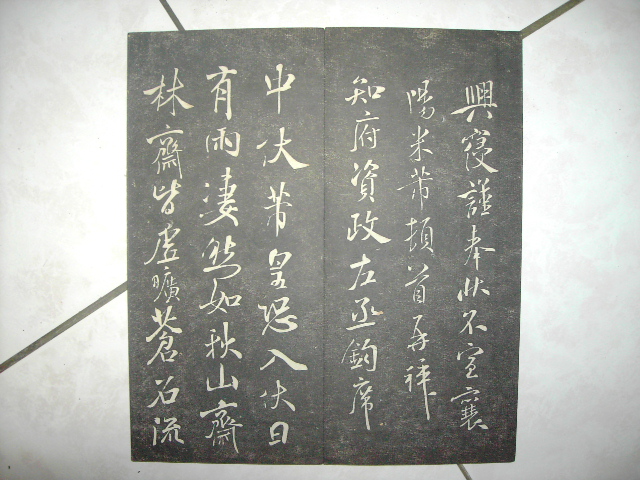 興寢謹奉狀不宣襄
陽米芾頓首再拜
知府資政左丞鈞席
中伏芾皇恐入伏日
有雨淒然如秋山齋
林齋皆虛曠蒼石流